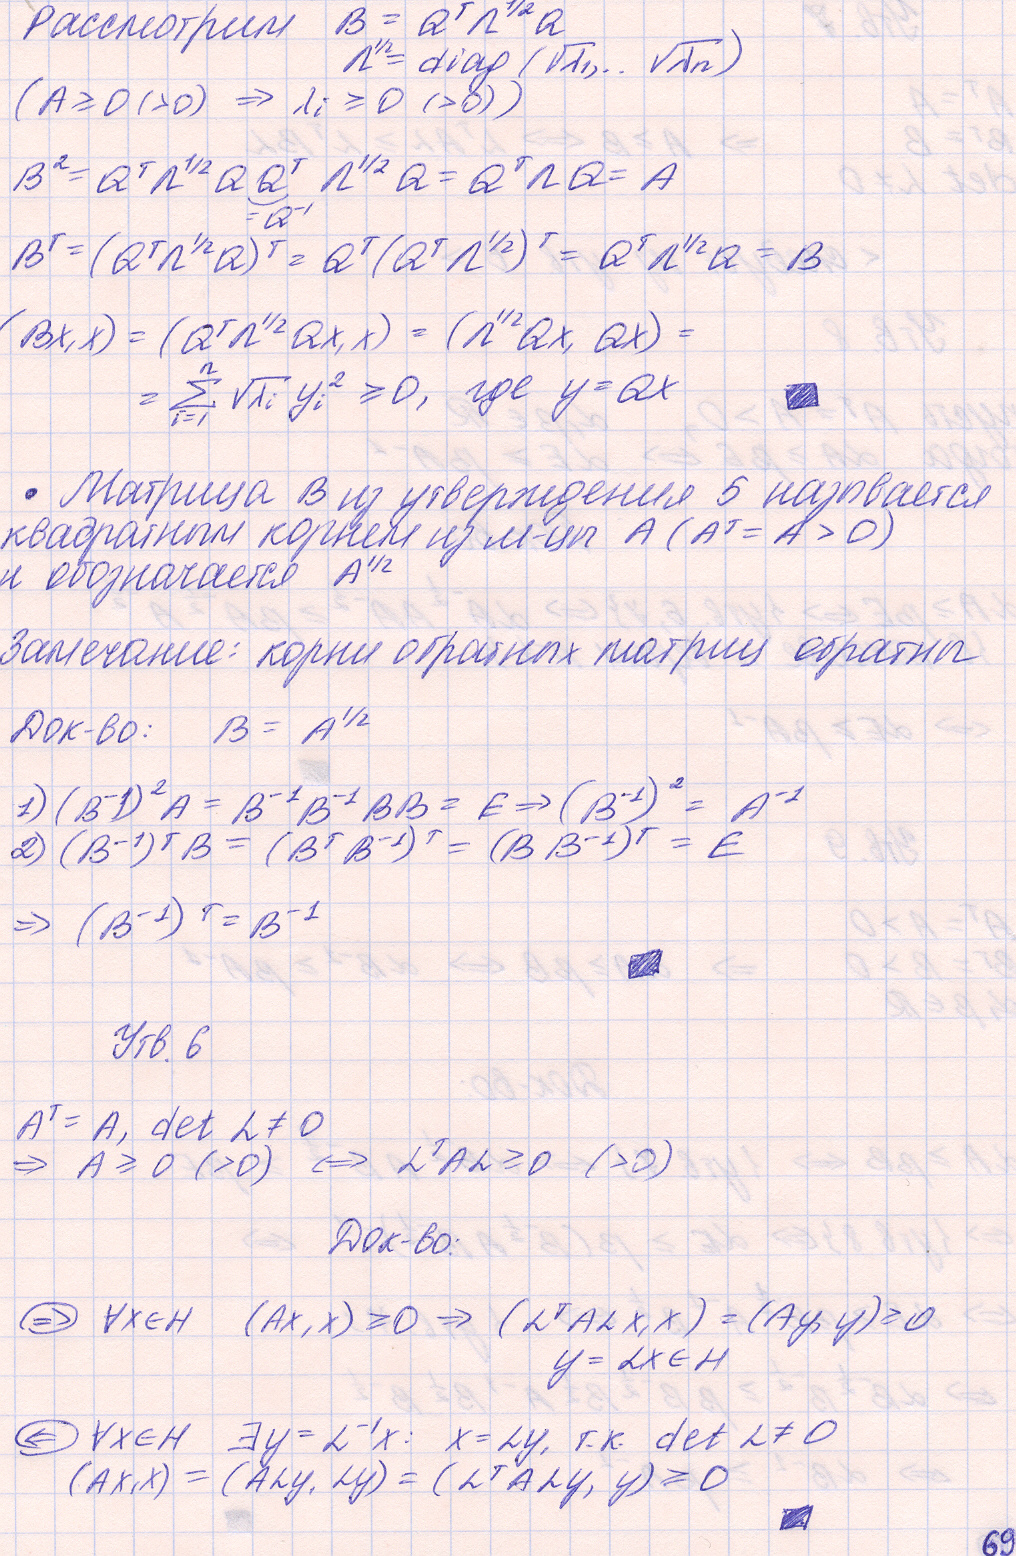 Рассмотрим B = QᵀΛ^{1/2}Q
Λ^{1/2} = diag(√λ₁,.. √λn)
(A ≥ 0 (>0) ⇒ λi ≥ 0 (>0))
B² = QᵀΛ^{1/2}QQᵀ Λ^{1/2}Q = QᵀΛQ = A
= Q⁻¹
Bᵀ = (QᵀΛ^{1/2}Q)ᵀ = Qᵀ(QᵀΛ^{1/2})ᵀ = QᵀΛ^{1/2}Q = B
(Bx, x) = (QᵀΛ^{1/2}Qx, x) = (Λ^{1/2}Qx, Qx) =
= ∑_{i=1}^{n} √λi yi² ≥ 0, где y = Qx
• Матрица B из утверждения 5 называется
квадратным корнем из м-цы A (Aᵀ = A > 0)
и обозначается A^{1/2}
Замечание: корни обратных матриц обратны
Док-во: B = A^{1/2}
1) (B⁻¹)²A = B⁻¹B⁻¹BB = E ⇒ (B⁻¹)² = A⁻¹
2) (B⁻¹)ᵀB = (BᵀB⁻¹)ᵀ = (BB⁻¹)ᵀ = E
⇒ (B⁻¹)ᵀ = B⁻¹
Утв. 6
Aᵀ = A, det L ≠ 0
⇒ A ≥ 0 (>0) ⇔ LᵀAL ≥ 0 (>0)
Док-во:
⇒ ∀x∈H (Ax, x) ≥ 0 ⇒ (LᵀALx, x) = (Ay, y) ≥ 0
y = Lx ∈ H
⇐ ∀x∈H ∃y = L⁻¹x: x = Ly, т.к. det L ≠ 0
(Ax, x) = (ALy, Ly) = (LᵀALy, y) ≥ 0
69